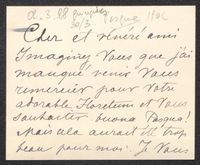 Cher et vénéré ami
Imaginez Vous que j'ai
manqué venir Vous
remercier pour Votre
adorable et Vous
souhaiter buona Pasqua!
Mais cela aurait été trop
beau pour moi. Je Vous